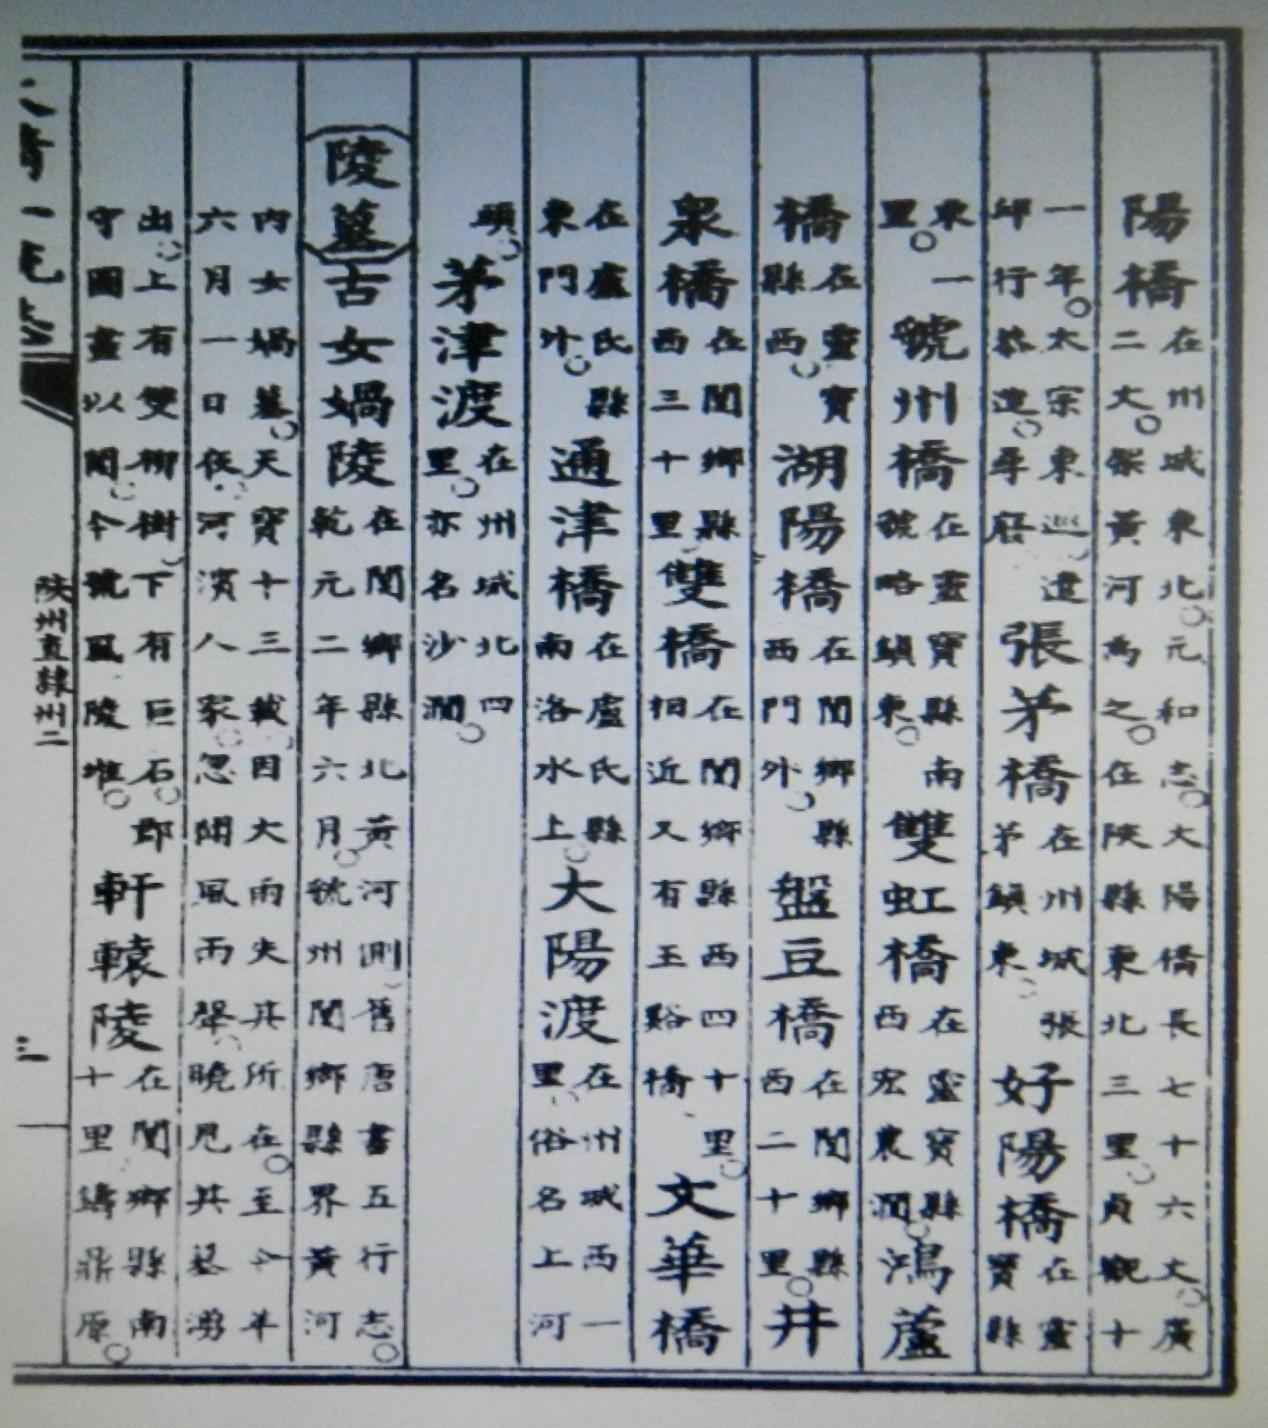 陽橋在州城東北。元和志。大陽橋長七十六丈。廣二丈。架黃河為之。在陝縣東北三里。貞觀十
一年。太宗東巡遣邱行恭造。尋廢張茅橋在州城張茅鎮東。好陽橋在靈寶縣
東一里。虢州橋在靈寶縣南虢略鎮東。雙虹橋在靈寶縣西宏農澗。鴻蘆
橋在靈寶縣西。湖陽橋在閿鄉縣西門外。盤豆橋在閿鄉縣西二十里。井
泉橋在閿鄉縣西三十里雙橋在閿鄉縣西四十里。相近又有玉谿橋文華橋
在盧氏縣東門外。通津橋在盧氏縣南洛水上。大陽渡在州城西一里俗名上河
頭。茅津渡在州城北四里。亦名沙澗。
陵墓古女媧陵在閿鄉縣北黃河側。舊唐書五行志。乾元二年六月。虢州閿鄉縣界黃河
內女媧墓。天寶十三載。因大雨失其所在。至今年六月一日夜。河濱人家。忽聞風雨聲。曉見其墓湧
出。上有雙柳樹。下有巨石。郡守圖畫以聞。今號風陵堆。軒轅陵在閿鄉縣南十里鑄鼎原。
大清一統志
陝州直隸州二
三